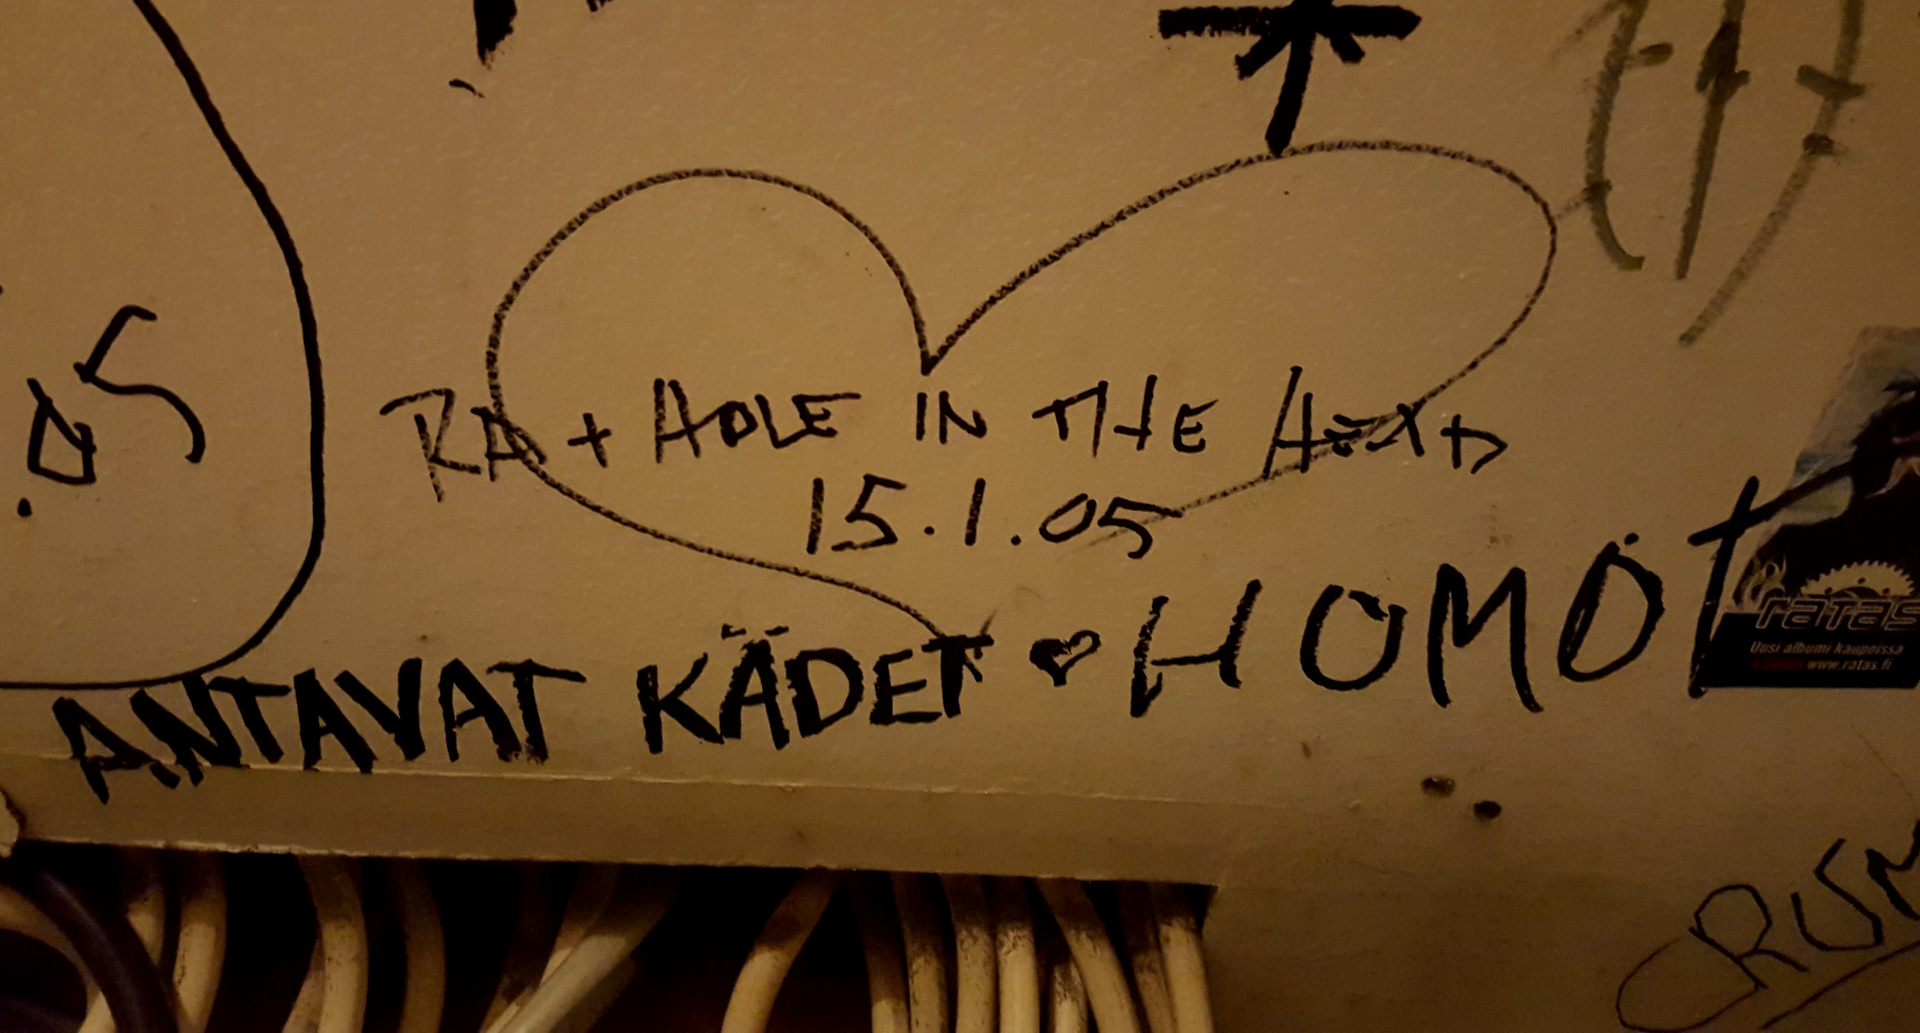 .05
RA + HOLE IN THE HEAD
15.1.05
ANTAVAT KÄDET ♥ HOMOT
ratas
Uusi albumi kaupoissa
www.ratas.fi